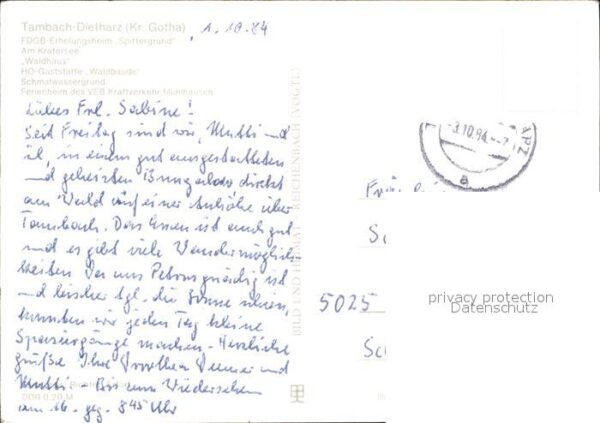 Tambach-Dietharz (Kr. Gotha) 1.10.84
FDGB-Erholungsheim „Spittergrund"
Am Kratersee
„Waldhaus"
HO-Gaststätte „Waldbaude"
Schmalwassergrund
Ferienheim des VEB Kraftverkehr Mühlhausen
Liebes Frl. Sabine!
Seit Freitag sind wir, Mutti und
ich, in einem gut ausgestatteten
und geheizten Bungalow direkt
am Wald auf einer Anhöhe über
Tambach. Das Essen ist auch gut
und es gibt viele Wandermöglich-
keiten. Da uns Petrus gnädig ist
und bisher tgl. die Sonne schien,
konnten wir jeden Tag kleine
Spaziergänge machen. Herzliche
Grüße Ihre Dorothea und
Mutti – Bis zum Wiedersehen
am 16. geg. 8 45 Uhr
DDR 0,20 M
BILD UND HEIMAT REICHENBACH (VOGTL)
-3.10.84.-7
a
5025
privacy protection
Datenschutz